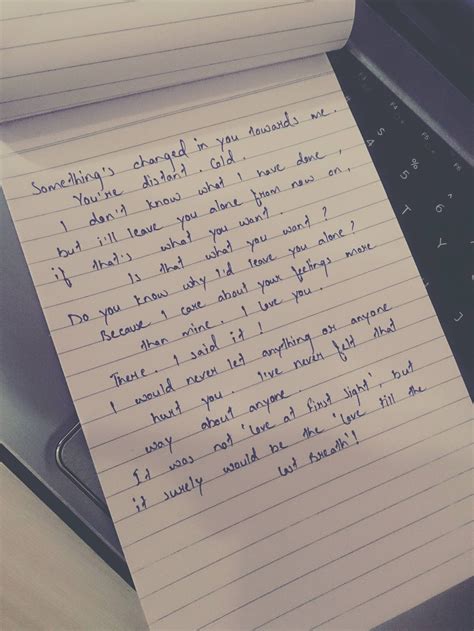 Something's changed in you towards me.
You're distant. Cold.
I don't know what I have done,
but i'll leave you alone from now on,
if that's what you want.
Is that what you want?
Do you know why I'd leave you alone?
Because I care about your feelings more
than mine. I love you.
There. I said it!
I would never let anything or anyone
hurt you. I've never felt that
way about anyone.
It was not 'love at first sight', but
it surely would be the 'love till the
last Breath'!
F4
F5
F6
%
5
6